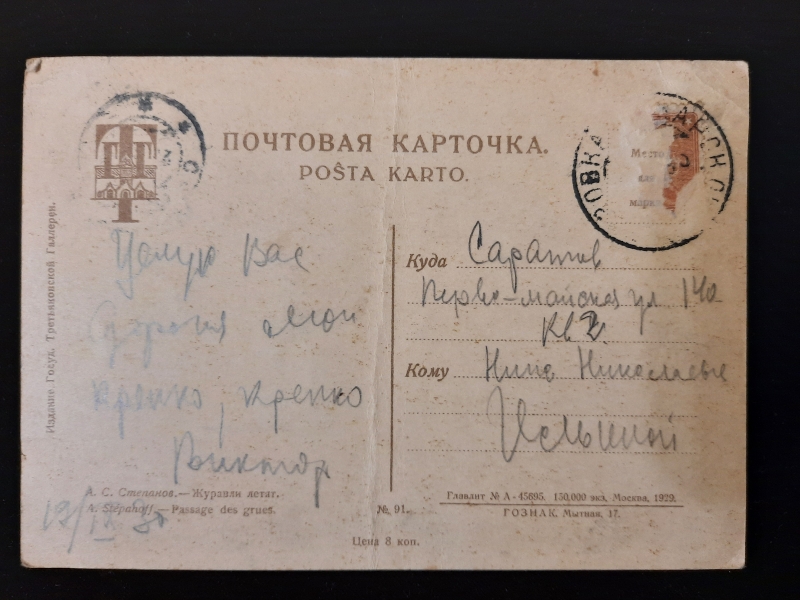 ПОЧТОВАЯ КАРТОЧКА.
POŜTA KARTO.
Место
для
марки
Издание Госуд. Третьяковской Галлереи.
Целую Вас
дорогая моя
крепко, крепко
Виктор
19/IX 30
Куда Саратов
Перво-майская ул 140
кв 2
Кому Нине Николаевне
А. С. Степанов.—Журавли летят.
A. Stépanoff.—Passage des grues.
№ 91.
Цена 8 коп.
Главлит № А-45695. 150,000 экз. Москва, 1929.
ГОЗНАК. Мытная, 17.